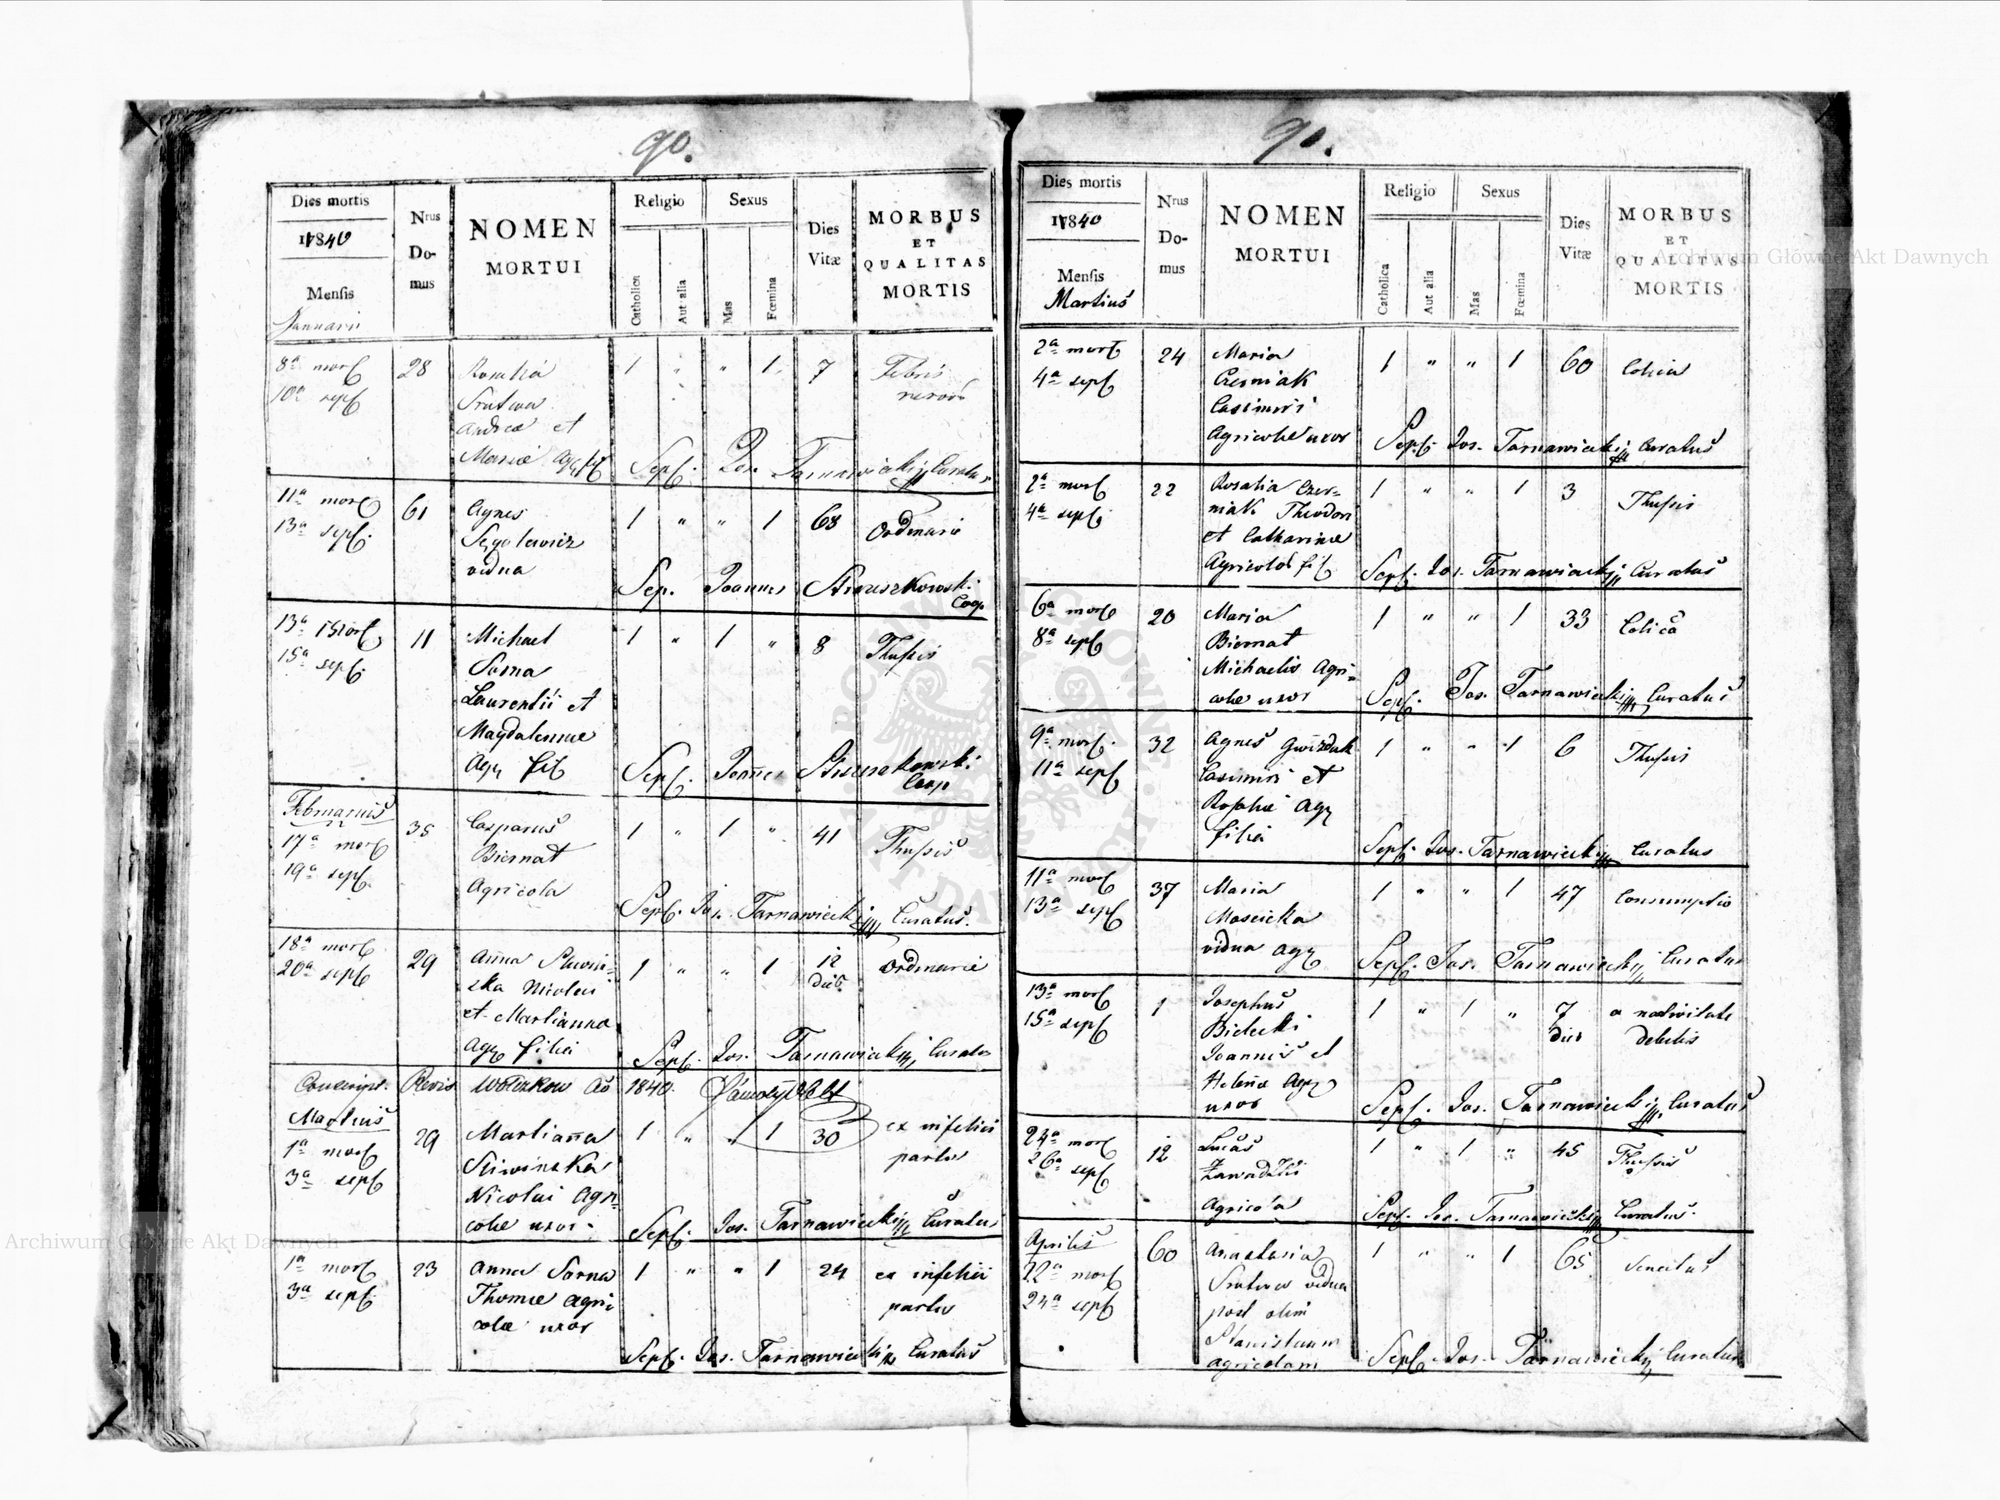 90.
Dies mortis
1840
Mensis
Januarii
Nrus
Do-
mus
NOMEN
MORTUI
Religio
Catholica
Aut alia
Sexus
Mas
Fœmina
Dies
Vitæ
MORBUS
ET
QUALITAS
MORTIS
8a mort 28 Rosalia 1 " " 1 7 Febris
10a sepl
Andreæ et
Mariæ Agr fil Sepl. Jos. Tarnawiecki Curatus
11a mort 61 Agnes 1 " " 1 68 Ordinaria
13a sepl.
vidua Sep. Joannes Struszkowski
Coop
13a mort 11 Michael 1 " 1 " 8 Thysis
15a sepl. Sorna
Laurentii et
Magdalennæ
Agr fil Sepl. Joannes Struszkowski
Coop
Februarius
17a mort 35 Casparus 1 " 1 " 41 Thysis
19a sepl. Biernat
Agricola Sepl. Jos. Tarnawiecki Curatus.
18a mort 29 Anna Sliwin- 1 " " 1 12 Ordinaria
20a sepl ska Nicolai dieb
et Marlianna
Agr filia Sepl. Jos. Tarnawiecki Curatus
Conscript. Revis Ao 1840.
Martius
1a mort 29 Marlianna 1 " " 1 30 ex infelici
3a sepl Sliwinska partu
Nicolai Agri-
colæ uxor Sepl. Jos. Tarnawiecki Curatus
1a mort 23 Anna Sorna 1 " " 1 24 ex infelici
3a sepl Thomæ agri partu
colæ uxor
Sepl. Jos. Tarnawiecki Curatus
90.
Dies mortis
1840
Mensis
Martius
Nrus
Do-
mus
NOMEN
MORTUI
Religio
Catholica
Aut alia
Sexus
Mas
Fœmina
Dies
Vitæ
MORBUS
ET
QUALITAS
MORTIS
2a mort 24 Maria 1 " " 1 60 Colica
4a sepl Czerniak
Casimiri
Agricolæ uxor Sepl. Jos. Tarnawiecki Curatus
2a mort 22 Rosalia Czer- 1 " " 1 3 Thysis
4a sepl. niak Theodori
et Catharinæ
Agricolæ fil Sepl. Jos. Tarnawiecki Curatus
6a mort 20 Maria 1 " " 1 33 Colica
8a sepl Biernat
Michaelis Agri-
colæ uxor Sepl. Jos. Tarnawiecki Curatus
9a mort. 32 Agnes Gwizdak 1 " " 1 6 Thysis
11a sepl Casimiri et
Agr
filia Sepl. Jos. Tarnawiecki Curatus
11a mort 37 Maria 1 " " 1 47 Consumptio
13a sepl Moscicka
vidua Agr Sepl. Jos. Tarnawiecki Curatus
13a mort 1 Josephus 1 " 1 " 7 a nativitate
15a sepl Bielecki dies debilis
Joannis et
Helenæ Agr
uxor Sepl. Jos. Tarnawiecki Curatus
24a mort 12 Lucas 1 " 1 " 45 Thysis
26a sepl Zawadzki
Agricola Sepl. Jos. Tarnawiecki Curatus.
Aprilis
22a mort 60 Anastasia 1 " " 1 65 Senectus
24a sepl vidua
post olim
Stanislaum
agricolam Sepl. Jos. Tarnawiecki Curatus
Archiwum Główne Akt Dawnych
Archiwum Główne Akt Dawnych